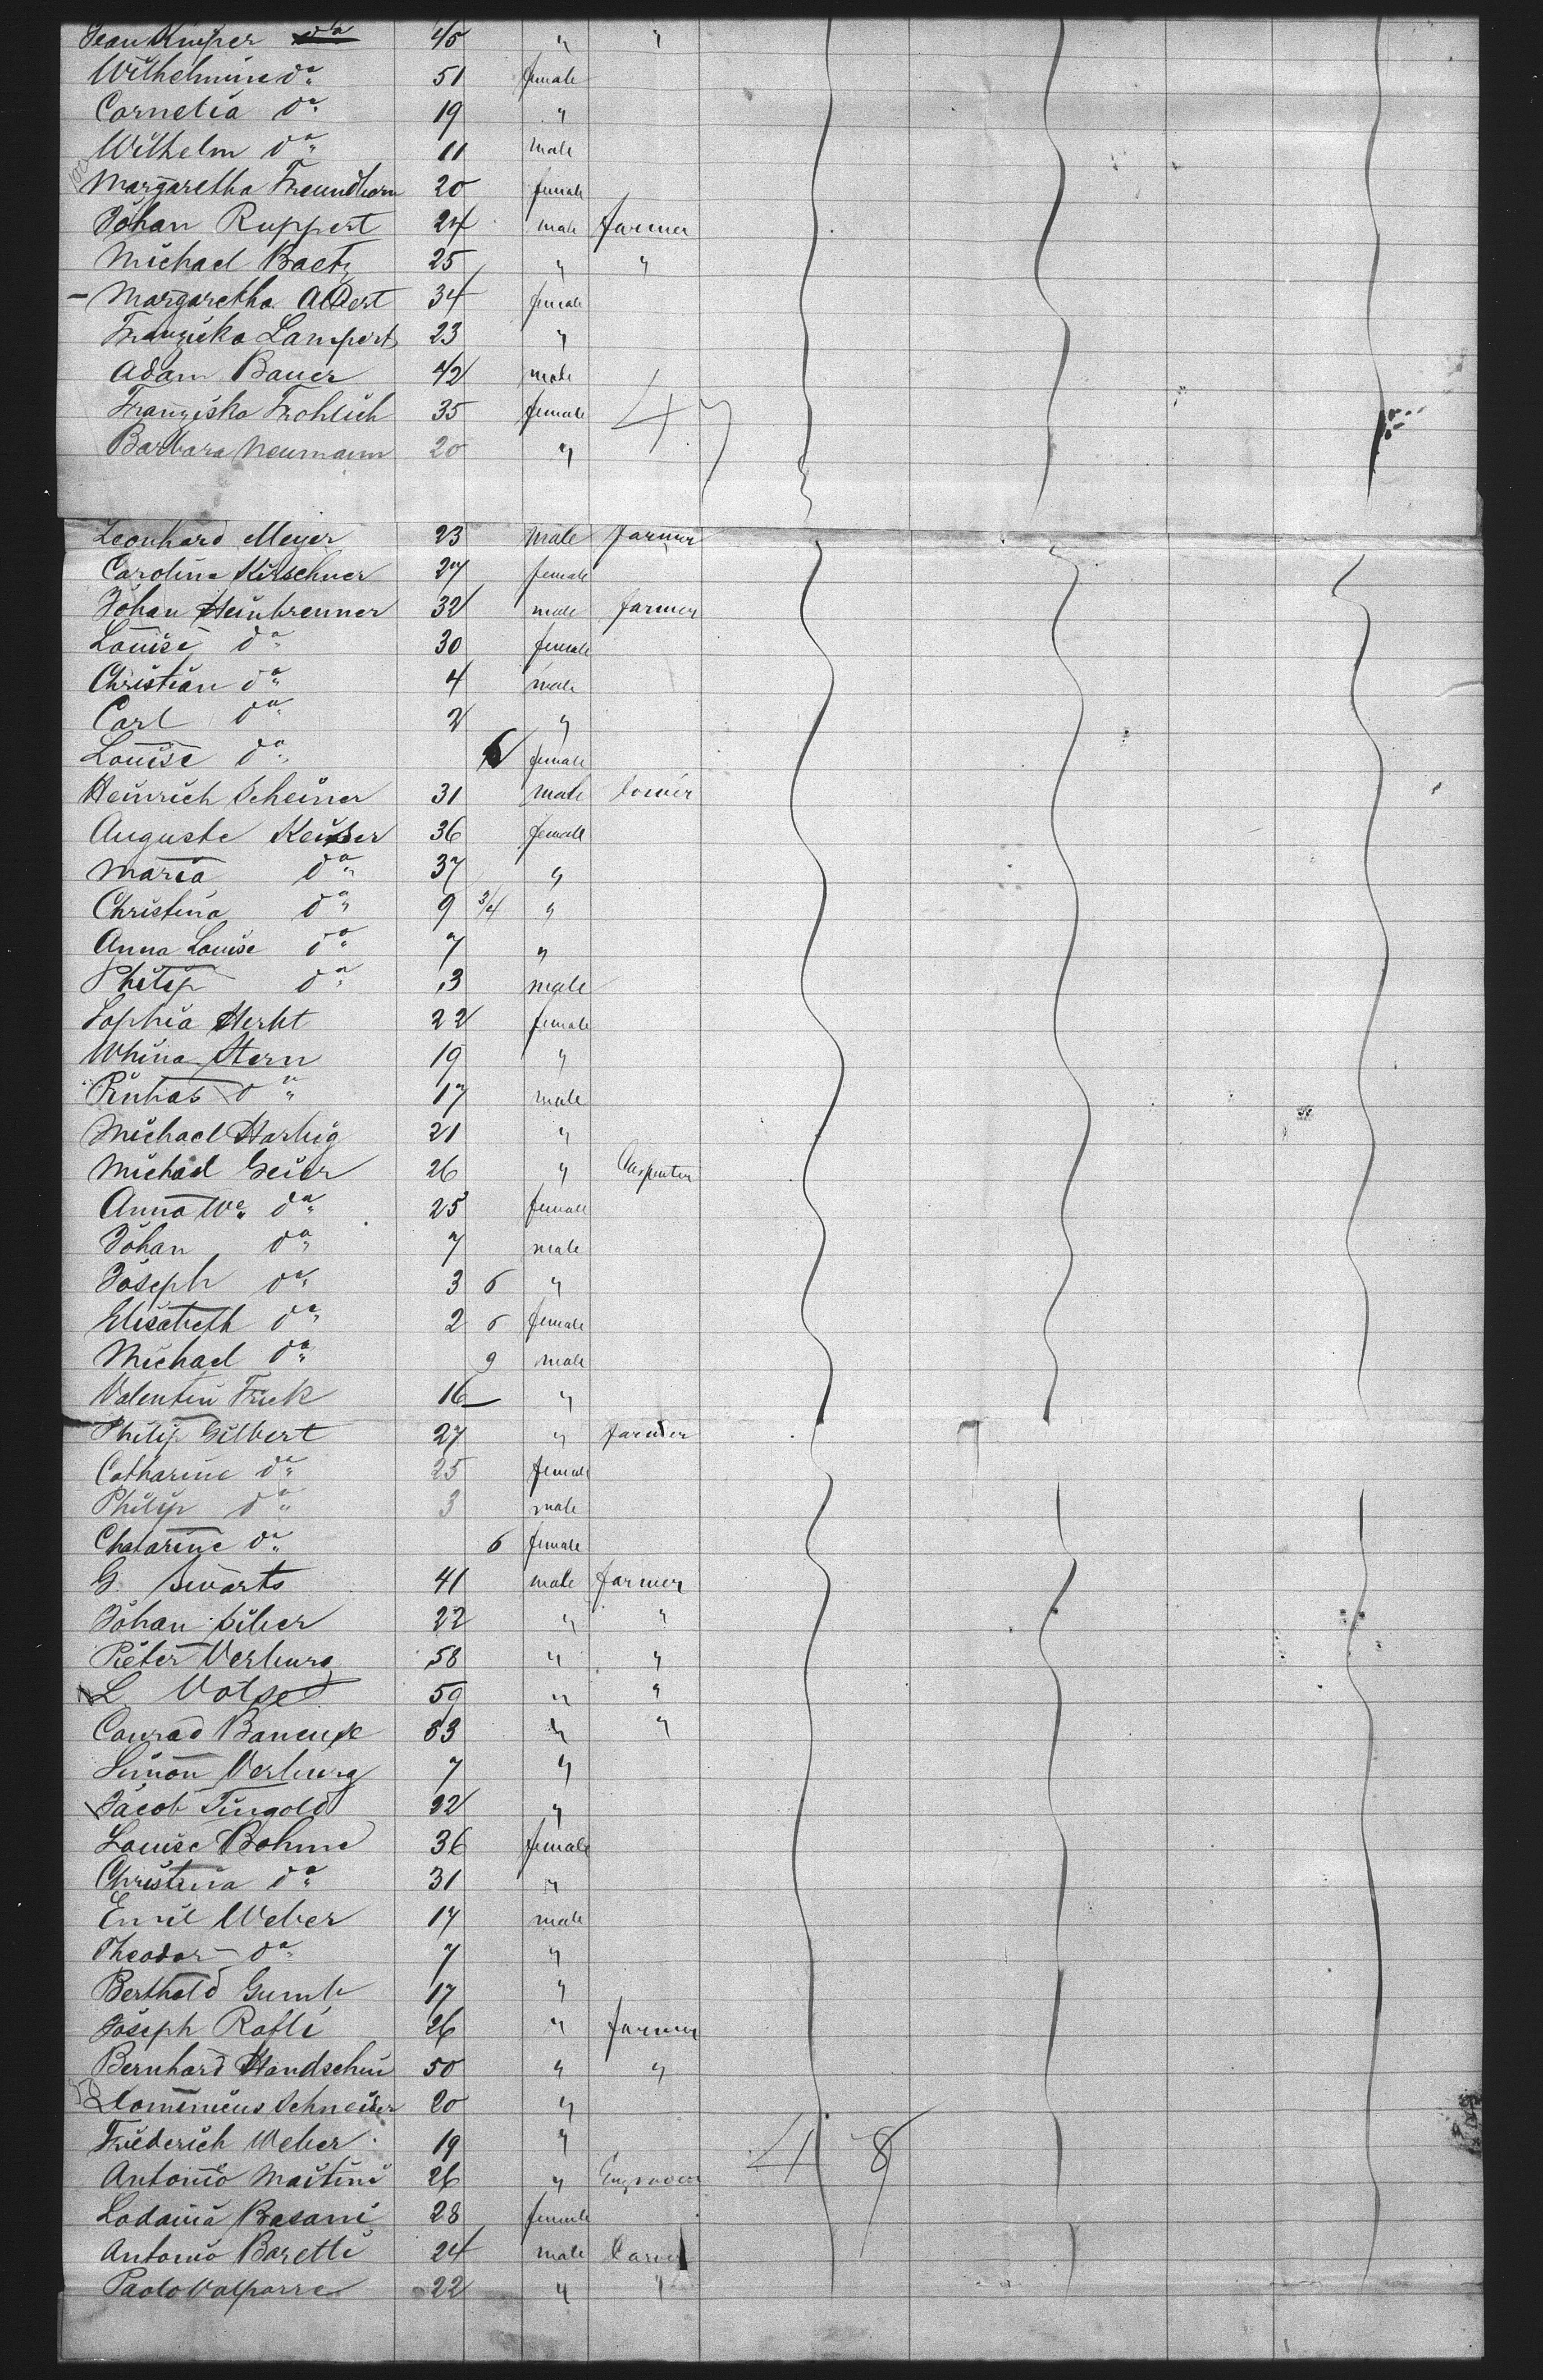 Jean Kuiper da 45 " "
Wilhelmine da 51 female
Cornelia da 19 "
Wilhelm da 11 male
Margaretha Freundhorn 20 female
Johan Ruppert 24 male farmer
Michael Baetz 25 " "
Margaretha Albert 34 female
Franziska Lamperts 23 "
Adam Bauer 42 male
Franziska Frohlich 35 female
Barbara Neumann 20 "
47
Leonhard Meyer 23 male farmer
Carolina Kirschner 27 female
Johan Steinbrenner 32 male farmer
Louise da 30 female
Christian da 4 male
Carl da 2 "
Louise da 6 female
Heinrich Scheiner 31 male
Auguste Keiser 36 female
Maria da 37 "
Christina da 9 3/4 "
Anna Louise da 7 "
Philip da 3 male
Sophia Herbt 22 female
Whina Stern 19 "
Pinhas da 17 male
Michael Harbig 21 "
Michael Geier 26 " Carpenter
Anna We da 25 female
Johan da 7 male
Joseph da 3 6 "
Elisabeth da 2 6 female
Michael da 9 male
Valentin Frick 16 "
Philip Gilbert 27 " farmer
Catharine da 25 female
Philip da 3 male
Chatarine da 6 female
G. Swarts 41 male farmer
Johan Silver 22 " "
Pieter Verburg 58 " "
L. 59 " "
Conrad 53 " "
Simon Verburg 7 "
Jacob Fingold 22 "
Louise Bohme 36 female
Christina da 31 "
Emil Weber 17 male
Theodor da 7 "
Berthold Gumb 17 "
Joseph Rafli 26 " farmer
Bernhard Handschin 50 " "
Domenicus Schneider 20 "
Friederich Weber 19 "
48
Antonio Martini 26 " Engraver
Lodavia Basani 28 female
Antonio Baretti 24 male
Paolo Valparre 22 " "